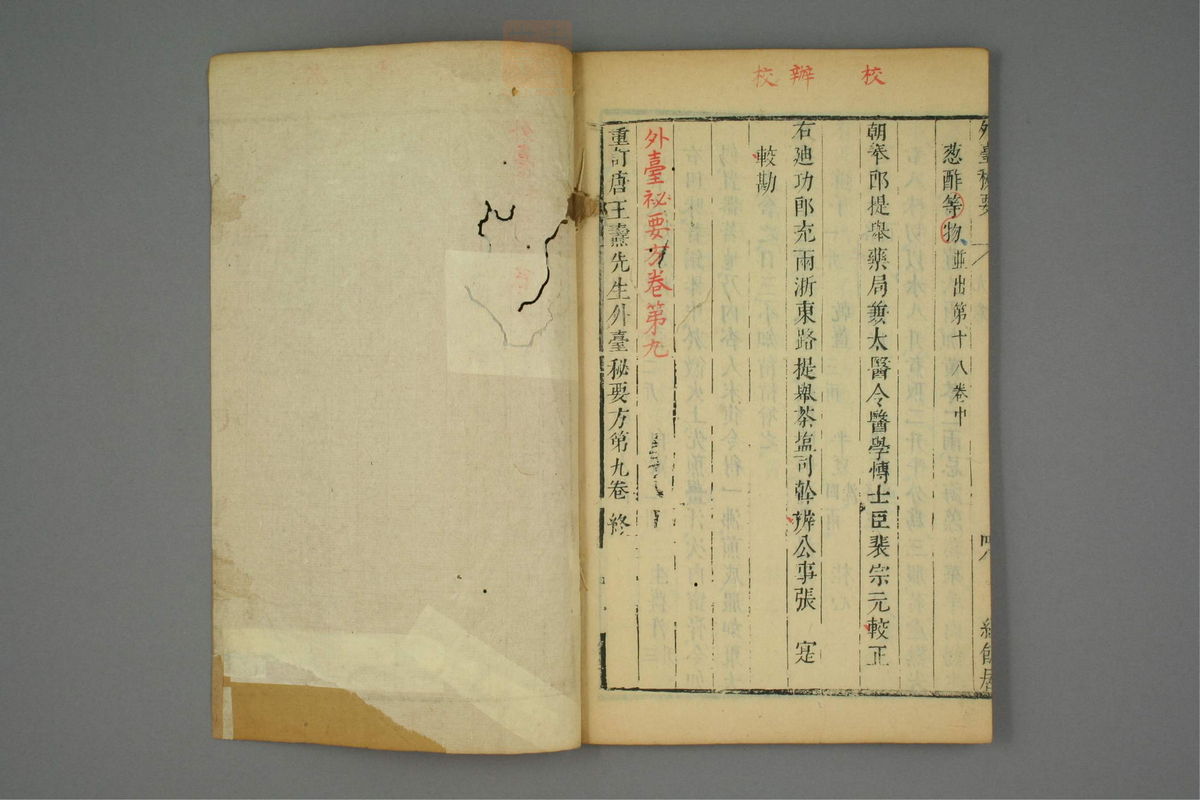 校
辦
校
外臺秘要
葱酢等物並出第十八卷中
朝奉郎提舉藥局兼太醫令醫學博士臣裴宗元較正
右廸功郎充兩浙東路提舉茶塩司幹辦公事張寔
較勘
外臺祕要方卷第九
重訂唐王燾先生外臺秘要方第九卷終